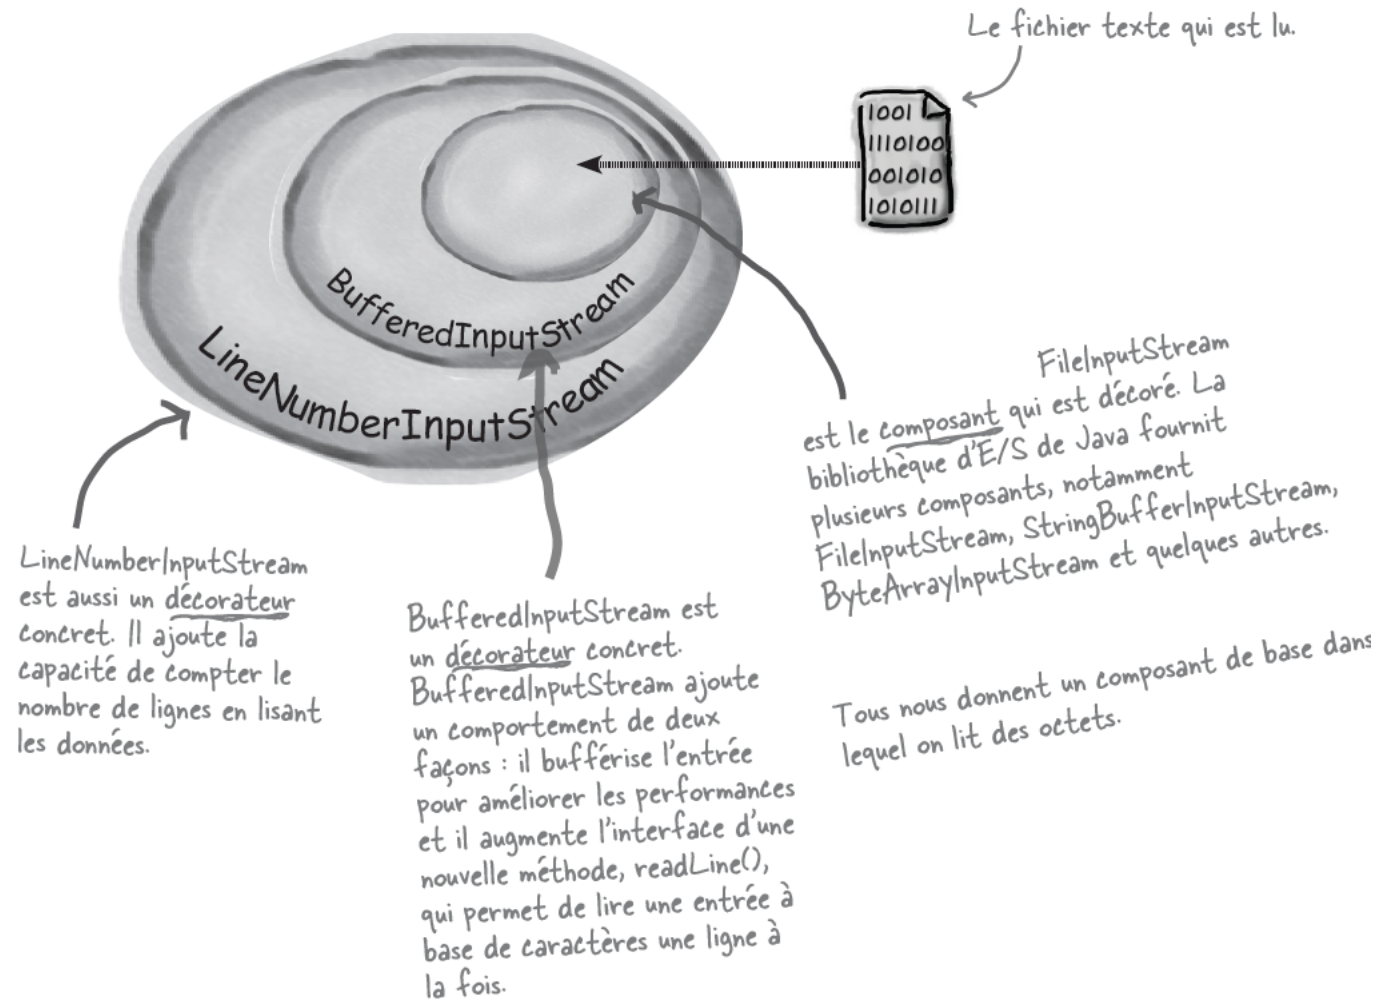 Le fichier texte qui est lu.
1001
1110100
001010
1010111
BufferedInputStream
LineNumberInputStream
FileInputStream
est le composant qui est décoré. La
bibliothèque d'E/S de Java fournit
plusieurs composants, notamment
FileInputStream, StringBufferInputStream,
ByteArrayInputStream et quelques autres.
Tous nous donnent un composant de base dans
lequel on lit des octets.
LineNumberInputStream
est aussi un décorateur
concret. Il ajoute la
capacité de compter le
nombre de lignes en lisant
les données.
BufferedInputStream est
un décorateur concret.
BufferedInputStream ajoute
un comportement de deux
façons : il bufférise l'entrée
pour améliorer les performances
et il augmente l'interface d'une
nouvelle méthode, readLine(),
qui permet de lire une entrée à
base de caractères une ligne à
la fois.